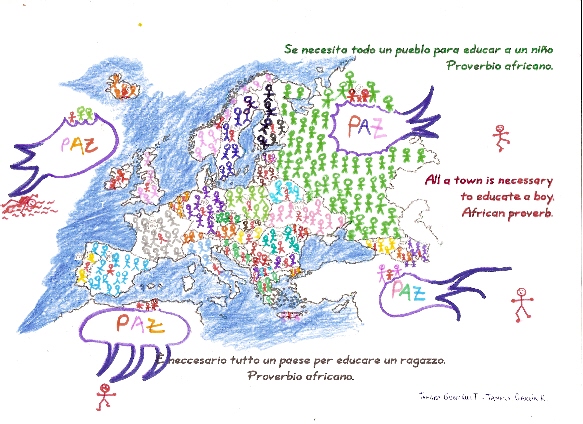 Se necesita todo un pueblo para educar a un niño
Proverbio africano.
PAZ
PAZ
All a town is necessary
to educate a boy.
African proverb.
PAZ
PAZ
neccesario tutto un paese per educare un ragazzo.
Proverbio africano.